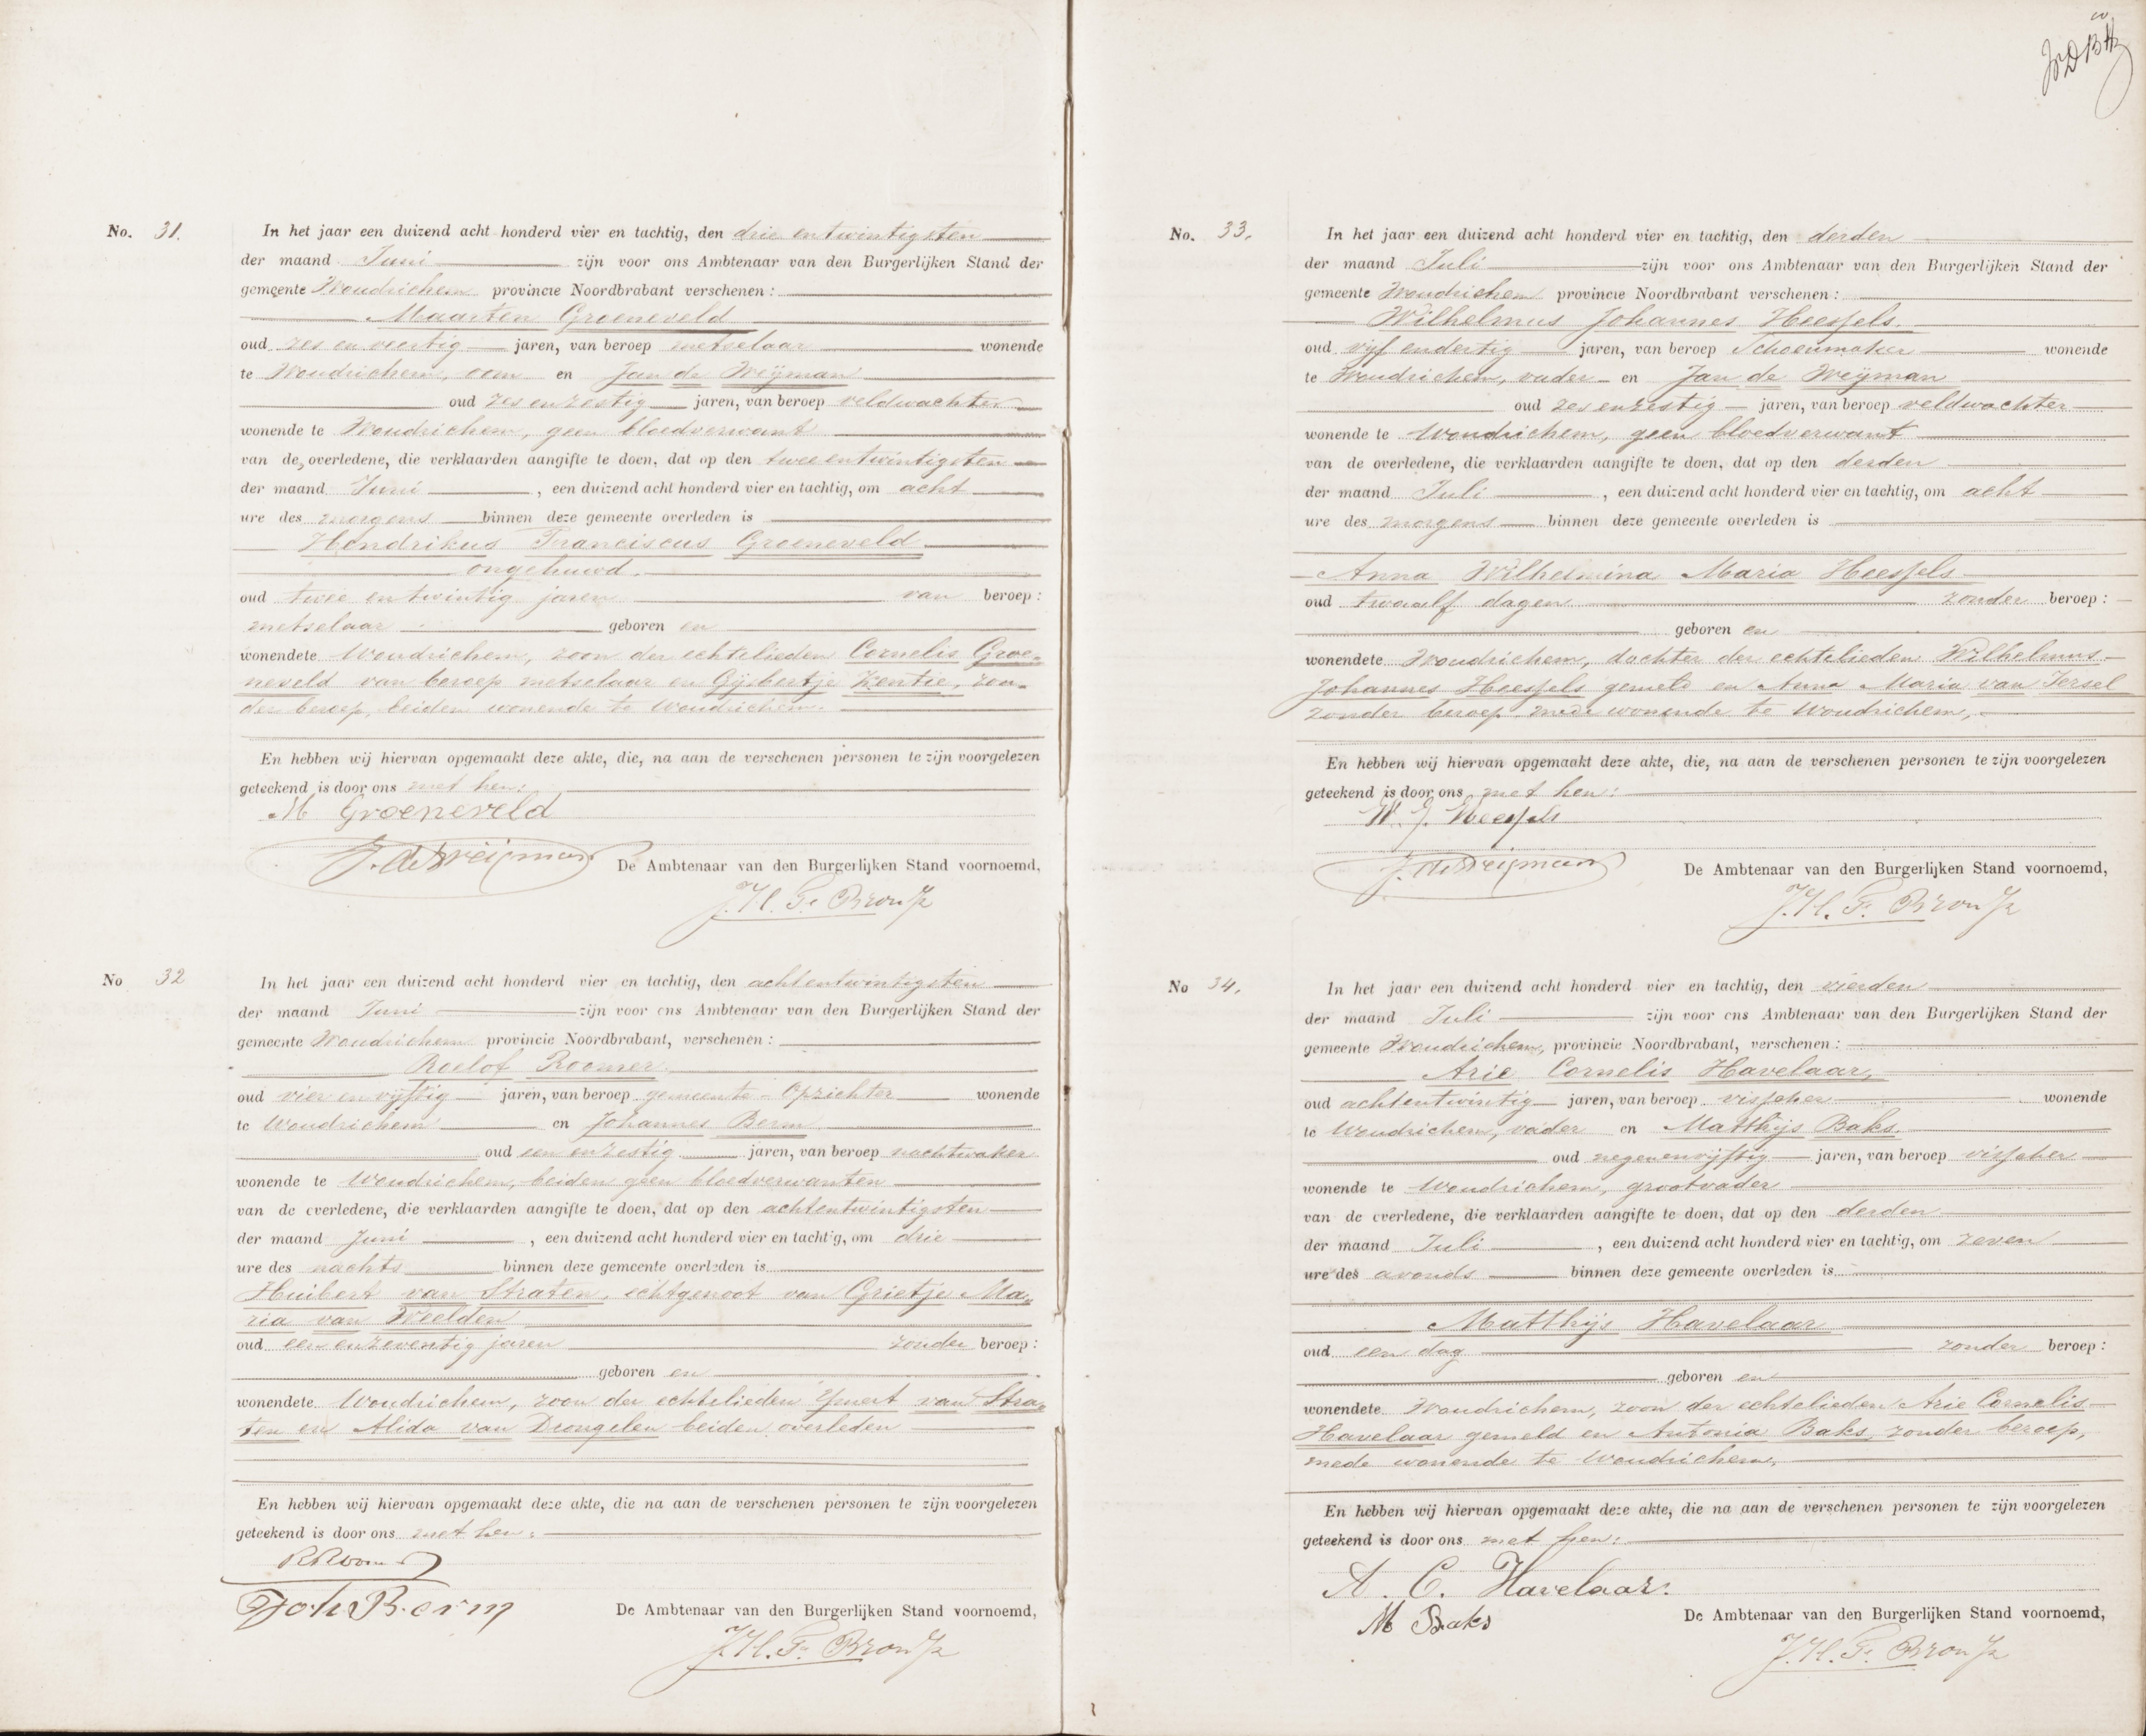 No. 31.
In het jaar een duizend acht honderd vier en tachtig, den drie en twintigsten
der maand Juni zijn voor ons Ambtenaar van den Burgerlijken Stand der
gemeente Woudrichem provincie Noordbrabant verschenen:
Maarten Groeneveld
oud zes en veertig jaren, van beroep metselaar wonende
te Woudrichem, oom en Jan de Weijman
oud zes en zestig jaren, van beroep veldwachter
wonende te Woudrichem, geen bloedverwant
van de overledene, die verklaarden aangifte te doen, dat op den twee en twintigsten
der maand Juni, een duizend acht honderd vier en tachtig, om acht
ure des morgens binnen deze gemeente overleden is
Hendrikus Franciscus Groeneveld
ongehuwd.
oud twee en twintig jaren van beroep:
metselaar geboren en
wonende te Woudrichem, zoon der echtelieden Cornelis Groe-
neveld van beroep metselaar en Gijsbertje Kentie, zon-
der beroep, beiden wonende te Woudrichem.
En hebben wij hiervan opgemaakt deze akte, die, na aan de verschenen personen te zijn voorgelezen
geteekend is door ons met hen:
M Groeneveld
J. de Weijman
De Ambtenaar van den Burgerlijken Stand voornoemd,
No 32
In het jaar een duizend acht honderd vier en tachtig, den achtentwintigsten
der maand Juni zijn voor ons Ambtenaar van den Burgerlijken Stand der
gemeente Woudrichem provincie Noordbrabant, verschenen:
Roelof Roomer
oud vier en vijftig jaren, van beroep gemeente-Opzichter wonende
te Woudrichem en Johannes Berm
oud een en zestig jaren, van beroep nachtwaker
wonende te Woudrichem, beiden geen bloedverwanten
van de overledene, die verklaarden aangifte te doen, dat op den achtentwintigsten
der maand Juni, een duizend acht honderd vier en tachtig, om drie
ure des nachts binnen deze gemeente overleden is
Huibert van Straten, echtgenoot van Grietje Ma-
ria van Weelden
oud een en zeventig jaren zonder beroep:
geboren en
wonende te Woudrichem, zoon der echtelieden van Stra-
ten en Alida van Drongelen beiden overleden
En hebben wij hiervan opgemaakt deze akte, die na aan de verschenen personen te zijn voorgelezen
geteekend is door ons met hen:
R Roomer
Joh Berm
De Ambtenaar van den Burgerlijken Stand voornoemd,
No. 33.
In het jaar een duizend acht honderd vier en tachtig, den derden
der maand Juli zijn voor ons Ambtenaar van den Burgerlijken Stand der
gemeente Woudrichem provincie Noordbrabant verschenen:
Wilhelmus Johannes Heessels
oud vijf en dertig jaren, van beroep Schoenmaker wonende
te Woudrichem, vader en Jan de Weijman
oud zes en zestig jaren, van beroep veldwachter
wonende te Woudrichem, geen bloedverwant
van de overledene, die verklaarden aangifte te doen, dat op den derden
der maand Juli, een duizend acht honderd vier en tachtig, om acht
ure des morgens binnen deze gemeente overleden is
Anna Wilhelmina Maria Heessels
oud twaalf dagen zonder beroep:
geboren en
wonende te Woudrichem, dochter der echtelieden Wilhelmus
Johannes Heessels gemeld en Anna Maria van Iersel
zonder beroep mede wonende te Woudrichem,
En hebben wij hiervan opgemaakt deze akte, die, na aan de verschenen personen te zijn voorgelezen
geteekend is door ons met hen:
W. J. Heessels
J. de Weijman
De Ambtenaar van den Burgerlijken Stand voornoemd,
No 34.
In het jaar een duizend acht honderd vier en tachtig, den vierden
der maand Juli zijn voor ons Ambtenaar van den Burgerlijken Stand der
gemeente Woudrichem, provincie Noordbrabant, verschenen:
Arie Cornelis Havelaar,
oud achtentwintig jaren, van beroep visscher wonende
te Woudrichem, vader en Matthijs Baks.
oud negenenvijftig jaren, van beroep visscher
wonende te Woudrichem, grootvader
van de overledene, die verklaarden aangifte te doen, dat op den derden
der maand Juli, een duizend acht honderd vier en tachtig, om zeven
ure des avonds binnen deze gemeente overleden is
Matthijs Havelaar
oud een dag zonder beroep:
geboren en
wonende te Woudrichem, zoon der echtelieden Arie Cornelis
Havelaar gemeld en Antonia Baks, zonder beroep,
mede wonende te Woudrichem,
En hebben wij hiervan opgemaakt deze akte, die na aan de verschenen personen te zijn voorgelezen
geteekend is door ons met hen:
A. C. Havelaar.
M Baks
De Ambtenaar van den Burgerlijken Stand voornoemd,